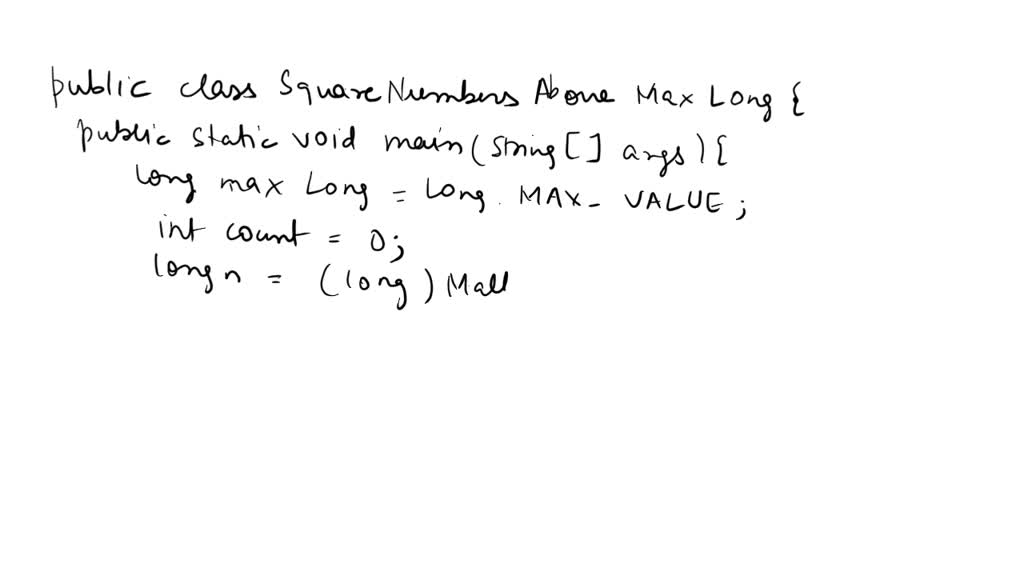 public class SquareNumbers Above Max Long {
public static void main(String[] args){
long max Long = Long. MAX_ VALUE;
int count = 0;
long n = (long) Mall